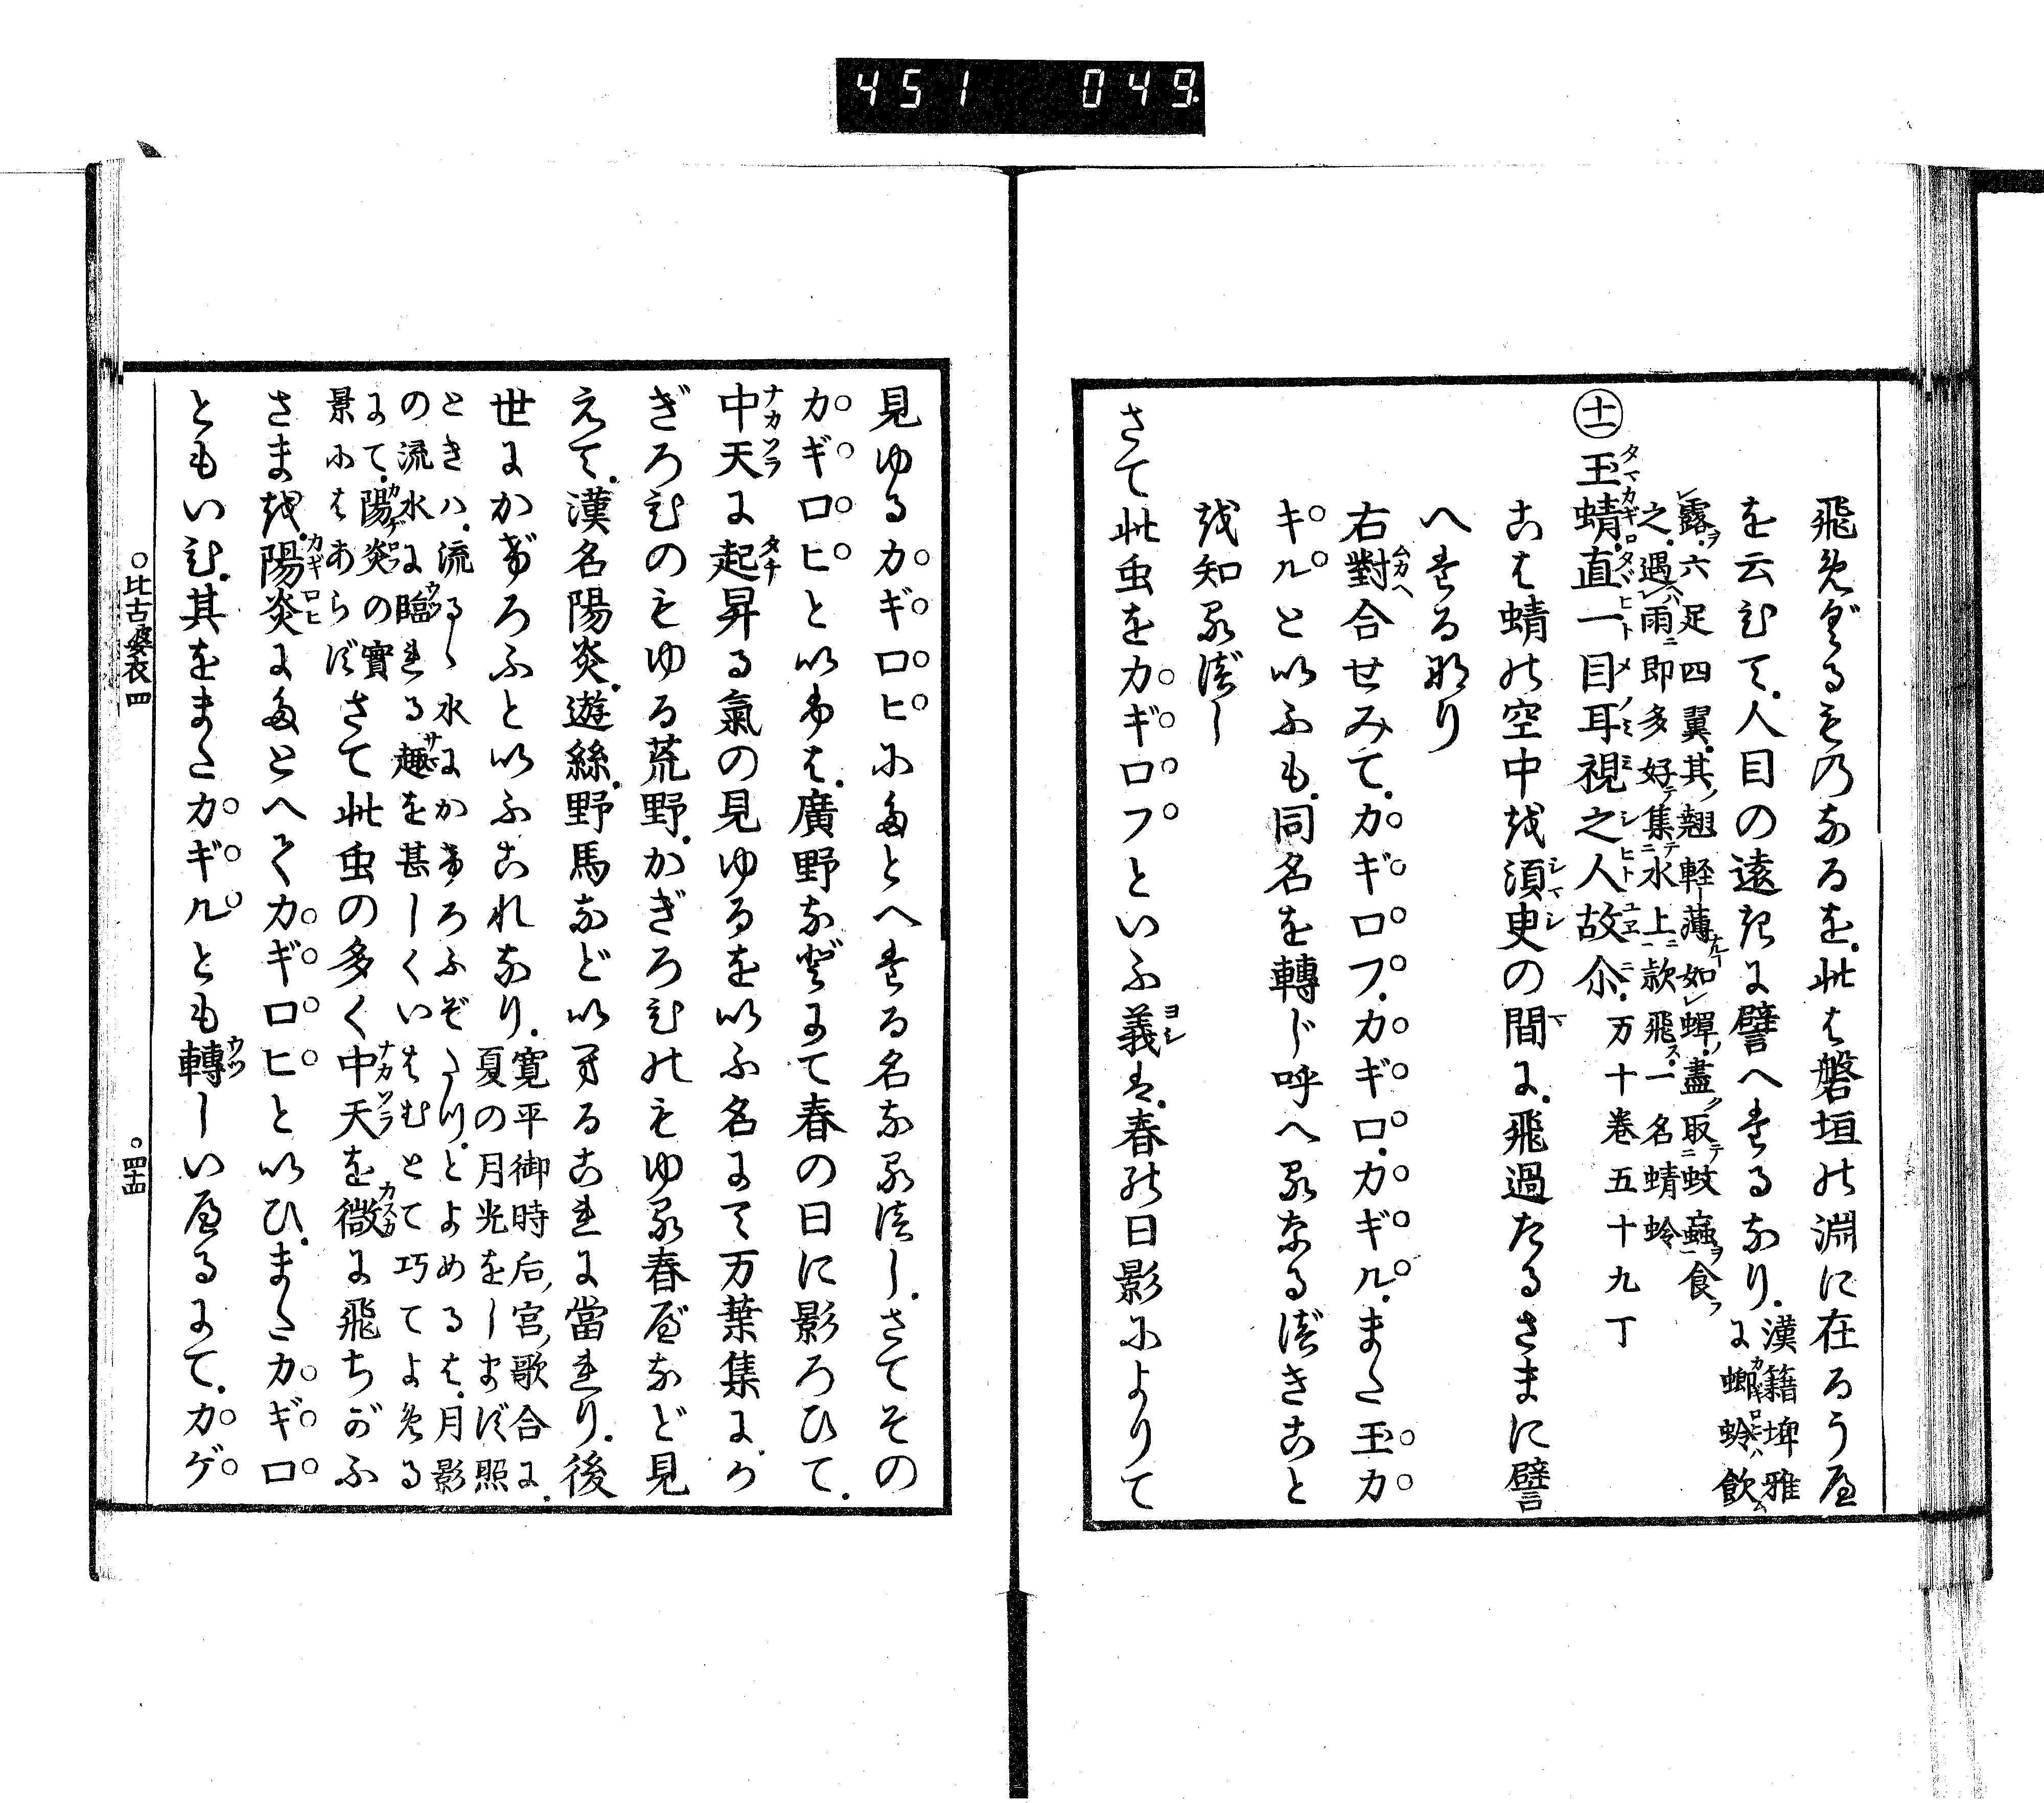 451 049
飛めぐるものなるを、此は磐垣の淵に在るうへ
を云ひて、人目の遠きに譬へたるなり、漢籍埤雅
に蜻蛉ハ飲ム
露ヲ六足四翼、其ノ翅軽ー薄ナルコ如レ蟬ノ、盡ク取テ蚊蟲ヲ食フ
之、遇ヘハレ雨ニ即多好テ集テ水上ニ款飛ス、一名蜻蛉
十一 玉蜻直一目耳視之人故尓、万十巻五十九丁
こは蜻の空中を須臾の間に、飛過たるさまに譬
へたる也
右對合せみて、カギロフ、カギロ、カギル、また玉カ
ギルと以ふも、同名を轉じ呼へるなるべきこと
を知るべし
さて此虫をカギロフといふ義は、春の日影によりて
見ゆるカギロヒにたとへたる名なるべし、さてその
カギロヒと以ふは、廣野などにて春の日に影ろひて、
中天に起昇る氣の見ゆるを以ふ名にて万葉集に、か
ぎろひのもゆる荒野、かぎろひのもゆる春べなど見
えて、漢名陽炎、遊絲、野馬など以へるこれに當れり、後
世にかげろふと以ふこれなり、寛平御時后ノ宮ノ歌合に、
夏の月光をしまず照
ときハ、流るゝ水にかげろふぞたつ、とよめるは、月影
の流水に臨れる趣を甚しくいはむとて巧てよめる
にて、陽炎の實
景にはあらず さて此虫の多く中天を微に飛ちがふ
さまを、陽炎にたとへてカギロヒと以ひ、またカギロ
ともいひ、其をまたカギルとも轉しいへるにて、カゲ
○比古婆衣四 ○四十四